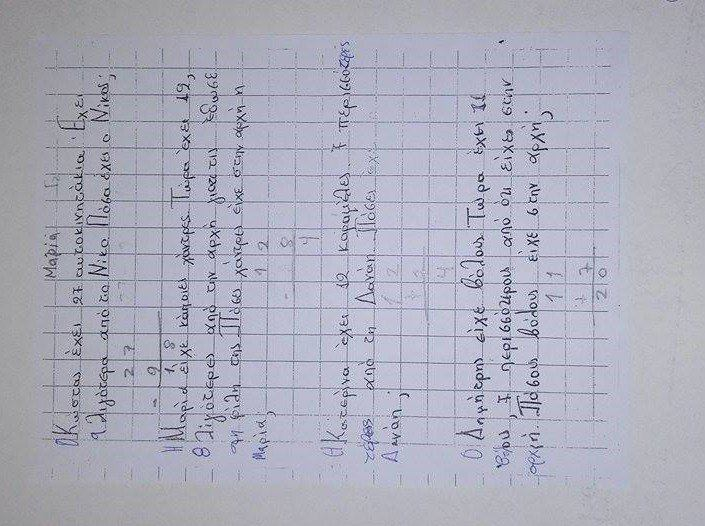 Μαρία
Ο Κώστας έχει 27 αυτοκινητάκια. Έχει
9 λιγότερα από το Νίκο. Πόσα έχει ο Νίκος;
27
- 9
18
Η Μαρία είχε κάποιες χάντρες. Τώρα έχει 12,
8 λιγότερες από την αρχή γιατί τις έδωσε
στη φίλη της. Πόσες χάντρες είχε στην αρχή η
Μαρία;
12
- 8
4
Η Κατερίνα έχει 12 καραμέλες, 7 περισσότερες
από τη Δανάη. Πόσες έχει
Δανάη;
12
4
Ο Δημήτρης είχε βόλους. Τώρα έχει 11
βόλους, 7 περισσότερους από ότι είχε στην
αρχή. Πόσους βόλους είχε στην αρχή;
11
+ 7
20